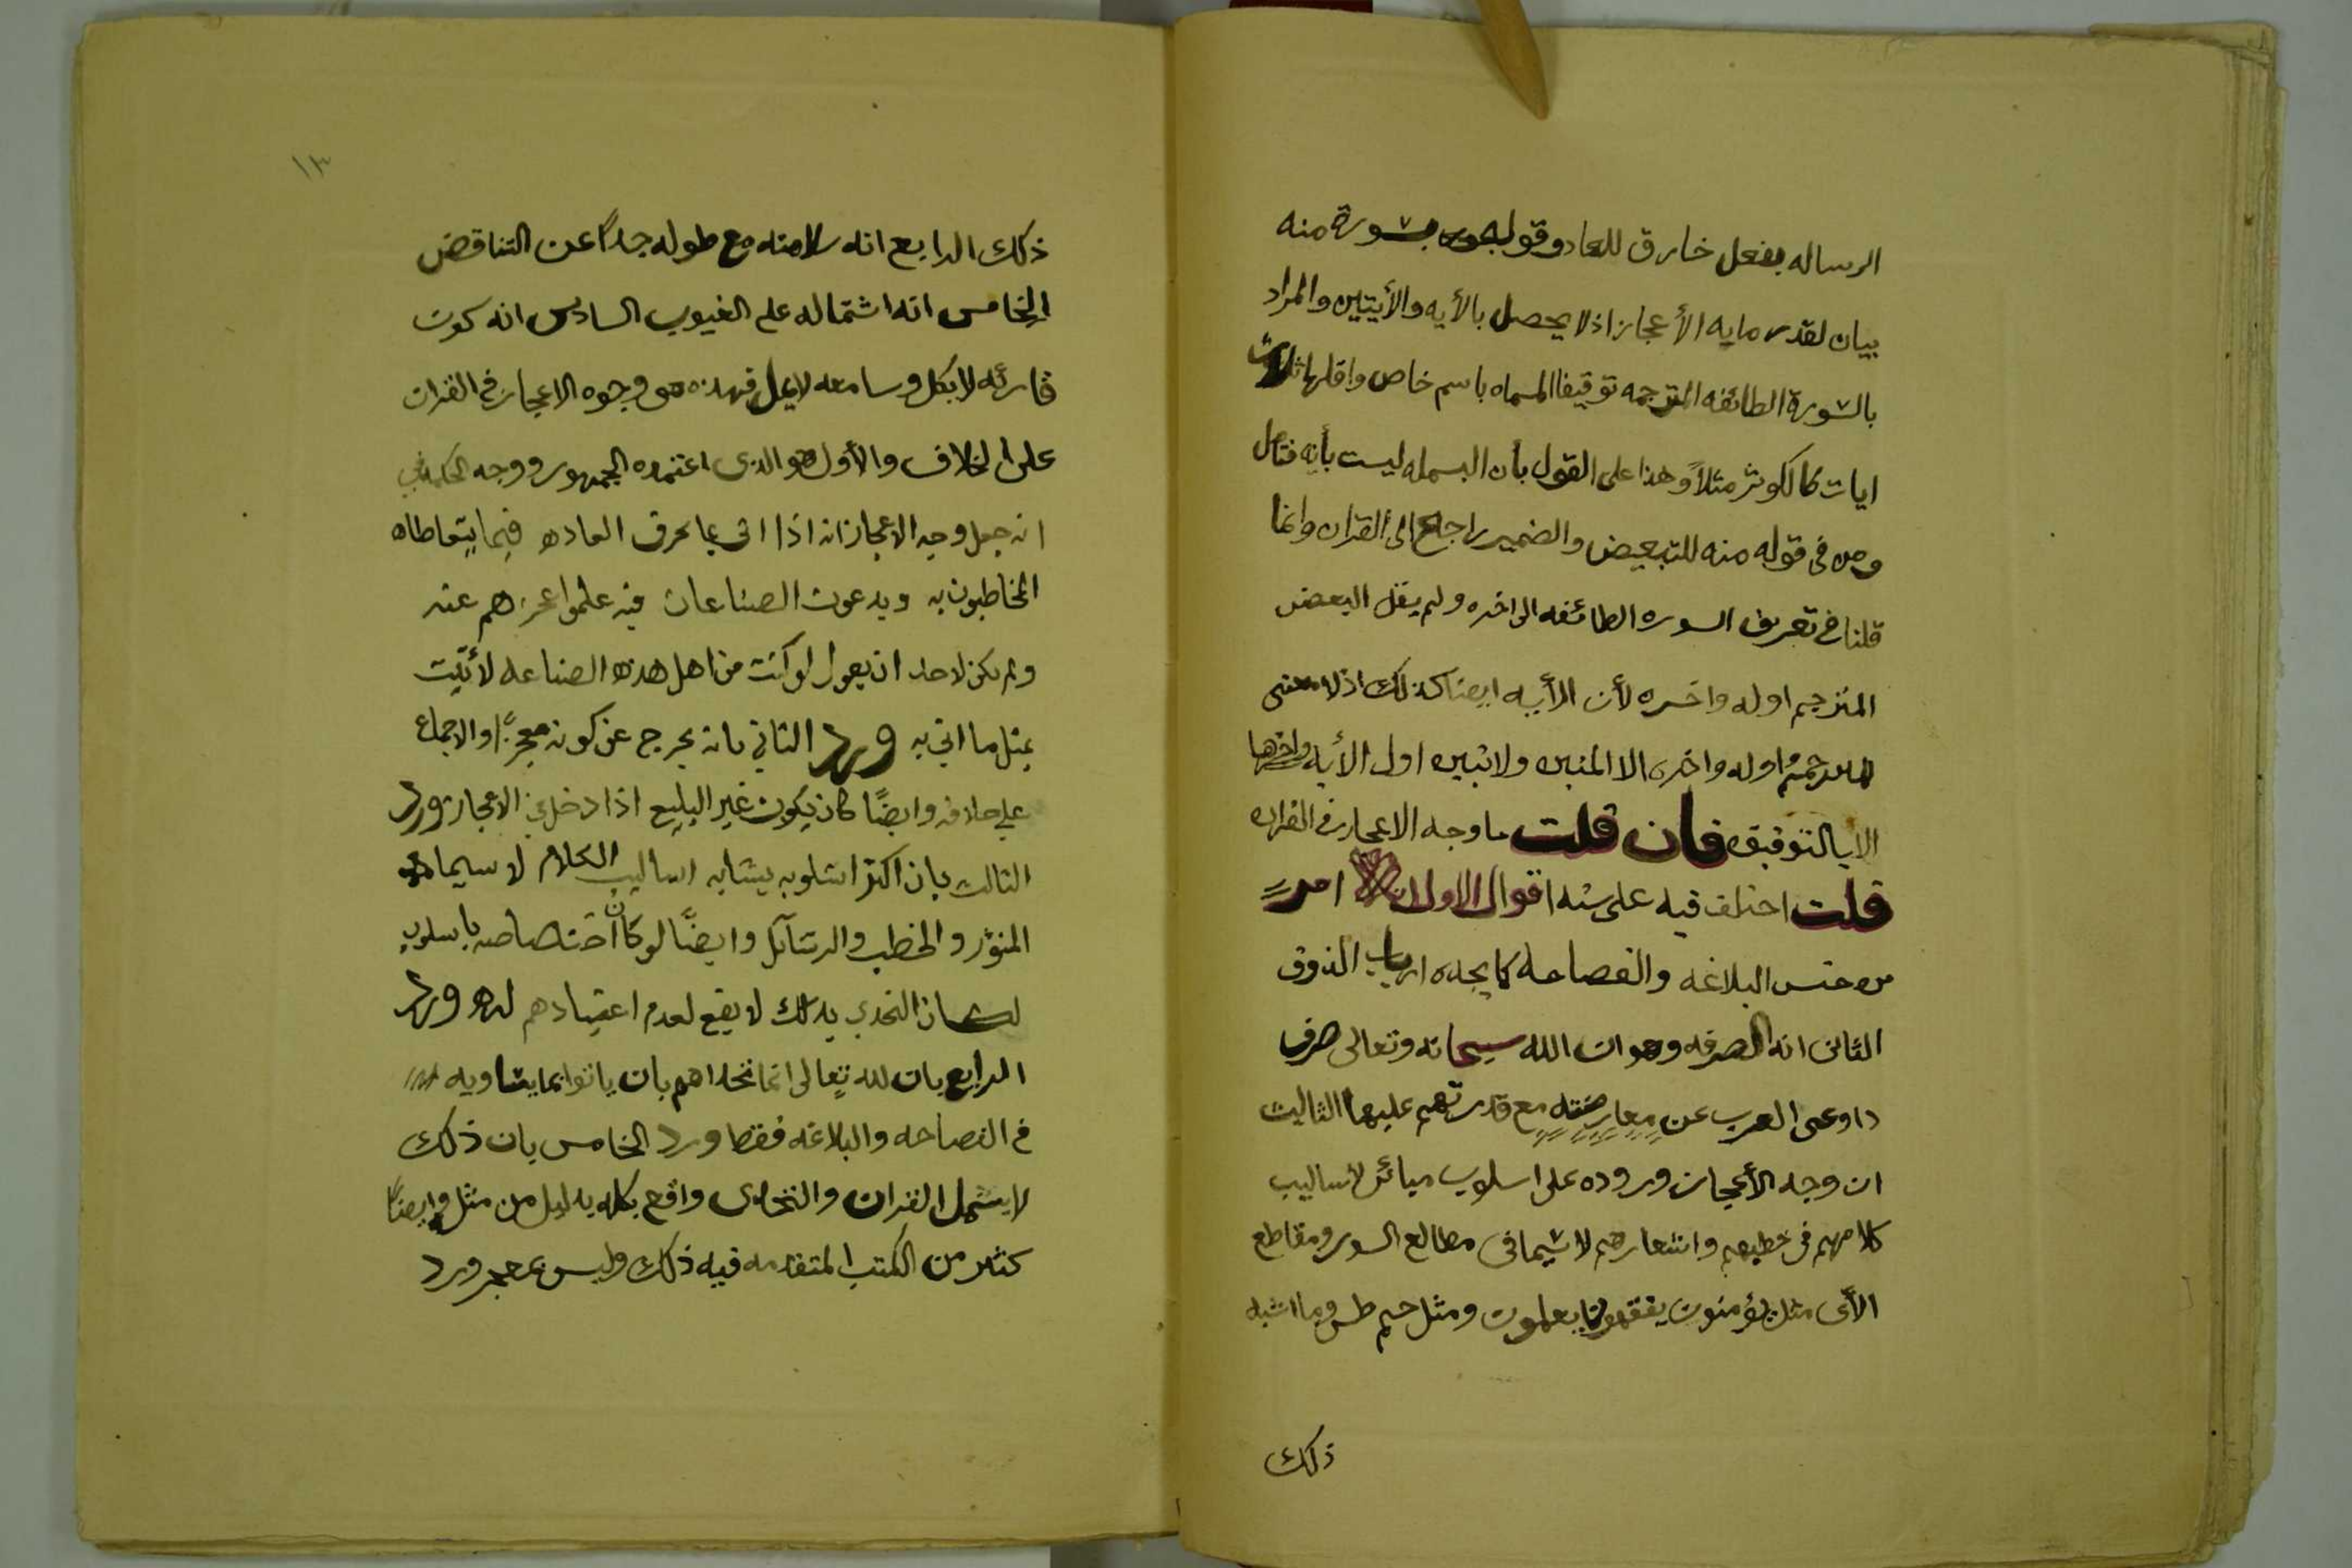 الرساله بفعل خارق للعاد وقوله بسورة منه
بيان لقدر مابه الأعجاز اذ لا يحصل بالأيه والأيتين والمراد
بالسورة الطائفه المترجمه توقيفا المسماه باسم خاص واقلها ثلاث
ايات كالكوثر مثلاً وهذا على القول بأن البسمله ليست بأيه فتأمل
ومن فى قوله منه للتبعيض والضمير راجع الى القران وانما
قلنا فى تعريف السوره الطائفه الى اخره ولم يقل البعض
المترجم اوله واخره لأن الأيه ايضا كذلك اذ لا معنى
للمترجم اوله واخره الا المبين ولا تبين اول الأيه واخرها
الا بالتوقيف فان قلت ما وجه الاعجاز فى القران
قلت اختلف فيه على سته اقوال الاول انه امر
من جنس البلاغه والفصاحه كما يجده ارباب الذوق
الثانى انه الصرفه وهو ان الله سبحانه وتعالى صرف
دواعى العرب عن معارضته مع قدرتهم عليها الثالث
ان وجه الأعجاز وروده على اسلوب مبائن لأساليب
كلامهم فى خطبهم واشعارهم لا سيما فى مطالع السور ومقاطع
الأى مثل يؤمنون يفقهون يعلمون ومثل حم طس وما اشبه
ذلك
١٣
ذلك الرابع انه سلامته مع طوله جداً عن التناقض
الخامس انه اشتماله على الغيوب السادس انه كون
قارئه لا يكل وسامعه لا يمل فهذه هى وجوه الاعجاز فى القران
على الخلاف والأول هو الذى اعتمده الجمهور ووجه الحكمه فى
انه جعل وجه الاعجاز انه اذا اتى بما يخرق العاده فيما يتعاطاه
المخاطبون به ويدعون الصناعات فيه علموا عجزهم عنه
ولم يكن لاحد ان يقول لو كنت من اهل هذه الصناعه لأتيت
بمثل ما اتى به ورد الثانى بانه يخرج عن كونه معجزاً والاجماع
على خلافه وايضاً كان يكون غير البليغ اذا دخل فى الاعجاز ورد
الثالث بان اكثر اسلوبه يشابه اساليب الكلام لا سيما
المنثور والخطب والرسآئل وايضاً لو كان اختصاصه باسلوب
لكان التحدى بذلك لا يقع لعدم اعتيادهم له ورد
الرابع بان لله تعالى انما تحداهم بان ياتوا بما يساويه
فى الفصاحه والبلاغه فقط ورد الخامس بان ذلك
لا يشمل القران والتحدى واقع بكله بدليل من مثل وايضاً
كثير من الكتب المتقدمه فيه ذلك وليس بمعجز ورد